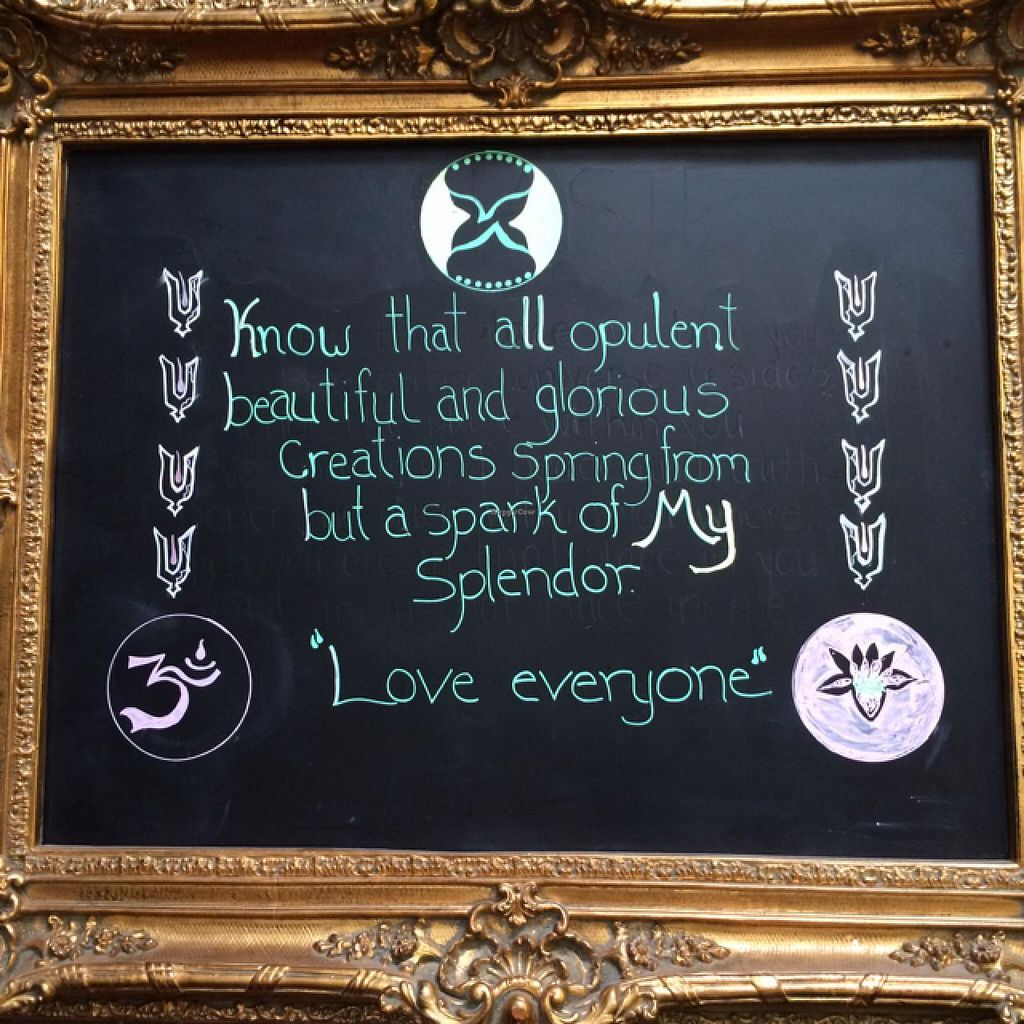 Know that all opulent
beautiful and glorious
Creations Spring from
but a spark of My
Splendor.
"Love everyone"
ॐ
HappyCow